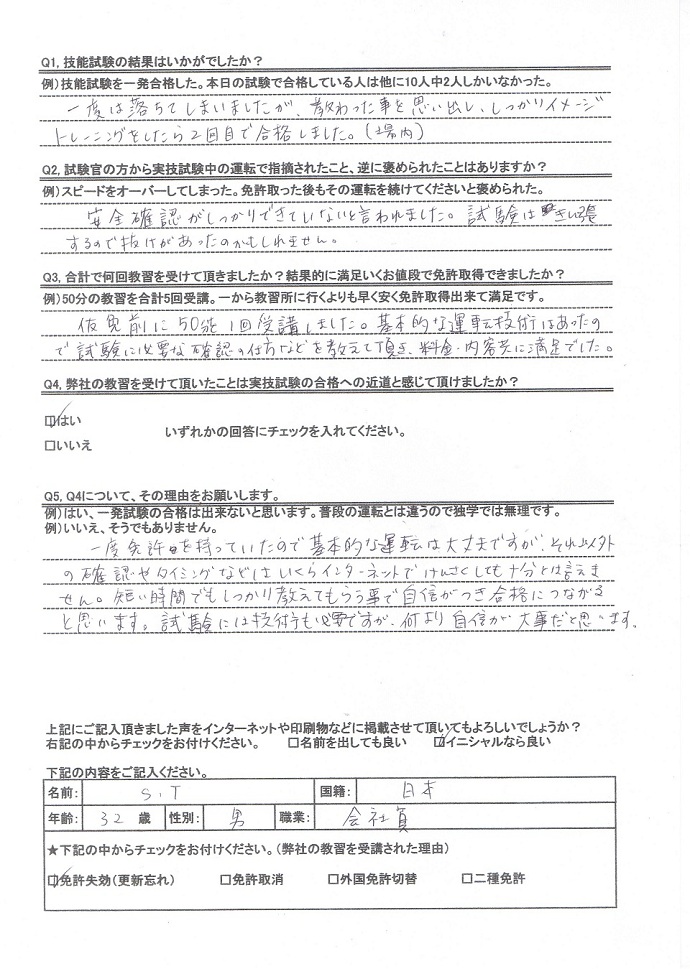 Q1, 技能試験の結果はいかがでしたか？
例）技能試験を一発合格した。本日の試験で合格している人は他に10人中2人しかいなかった。
一度は落ちてしまいましたが、教わった事を思い出し、しっかりイメージ
トレーニングをしたら2回目で合格しました。（場内）
Q2, 試験官の方から実技試験中の運転で指摘されたこと、逆に褒められたことはありますか？
例）スピードをオーバーしてしまった。免許取った後もその運転を続けてくださいと褒められた。
安全確認がしっかりできていないと言われました。試験は きん張
するので抜けがあったのかもしれません。
Q3, 合計で何回教習を受けて頂きましたか？結果的に満足いくお値段で免許取得できましたか？
例）50分の教習を合計5回受講。一から教習所に行くよりも早く安く免許取得出来て満足です。
仮免前に50分を1回受講しました。基本的な運転技術はあったの
で試験に必要な確認の仕方などを教えて頂き、料金・内容共に満足でした。
Q4, 弊社の教習を受けて頂いたことは実技試験の合格への近道と感じて頂けましたか？
☑はい
いずれかの回答にチェックを入れてください。
□いいえ
Q5, Q4について、その理由をお願いします。
例）はい、一発試験の合格は出来ないと思います。普段の運転とは違うので独学では無理です。
例）いいえ、そうでもありません。
一度免許を持っていたので基本的な運転は大丈夫ですが、それ以外
の確認やタイミングなどはいくらインターネットでけんさくしても十分とは言えま
せん。短い時間でもしっかり教えてもらう事で自信がつき合格につながる
と思います。試験には技術も必要ですが、何より自信が大事だと思います。
上記にご記入頂きました声をインターネットや印刷物などに掲載させて頂いてもよろしいでしょうか？
右記の中からチェックをお付けください。 □名前を出しても良い ☑イニシャルなら良い
下記の内容をご記入ください。
名前: S.T 国籍: 日本
年齢: 32 歳 性別: 男 職業: 会社員
★下記の中からチェックをお付けください。（弊社の教習を受講された理由）
☑免許失効（更新忘れ） □免許取消 □外国免許切替 □二種免許